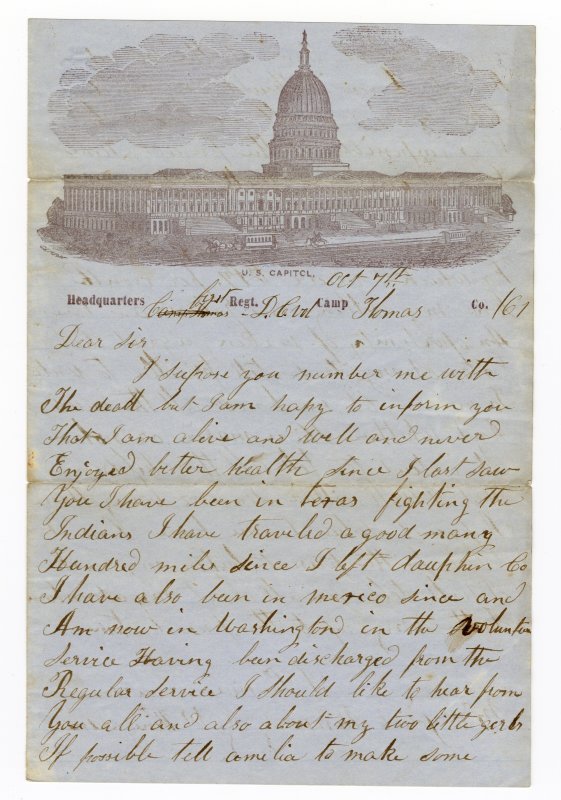 U. S. CAPITOL,
Oct 7th
Headquarters Camp Thomas First Regt. D.C Vol Camp Thomas Co. 161
Dear Sir
I supose you number me with
The dead but I am hapy to inform you
That I am alive and well and never
Enjoyed better health since I last saw
You I have been in texas fighting the
Indians I have traveled a good many
Hundred miles since I left dauphin Co
I have also been in mexico since and
Am now in Washington in the volunteer
Service Having been discharged from the
Regular service I should like to hear from
You all and also about my two little gerls
If possible tell amelia to make some